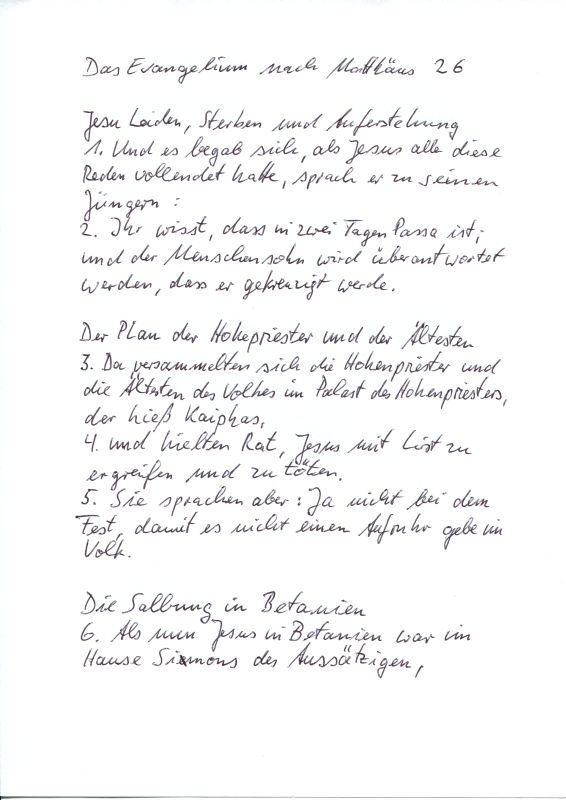 Das Evangelium nach Matthäus 26
Jesu Leiden, Sterben und Auferstehung
1. Und es begab sich, als Jesus alle diese
Reden vollendet hatte, sprach er zu seinen
Jüngern:
2. Ihr wisst, dass in zwei Tagen Passa ist;
und der Menschensohn wird überantwortet
werden, dass er gekreuzigt werde.
Der Plan der Hohepriester und der Ältesten
3. Da versammelten sich die Hohenpriester und
die Ältesten des Volkes im Palast des Hohenpriesters,
der hieß Kaiphas,
4. und hielten Rat, Jesus mit List zu
ergreifen und zu töten.
5. Sie sprachen aber: Ja nicht bei dem
Fest, damit es nicht einen Aufruhr gebe im
Volk.
Die Salbung in Betanien
6. Als nun Jesus in Betanien war im
Hause Simons des Aussätzigen,